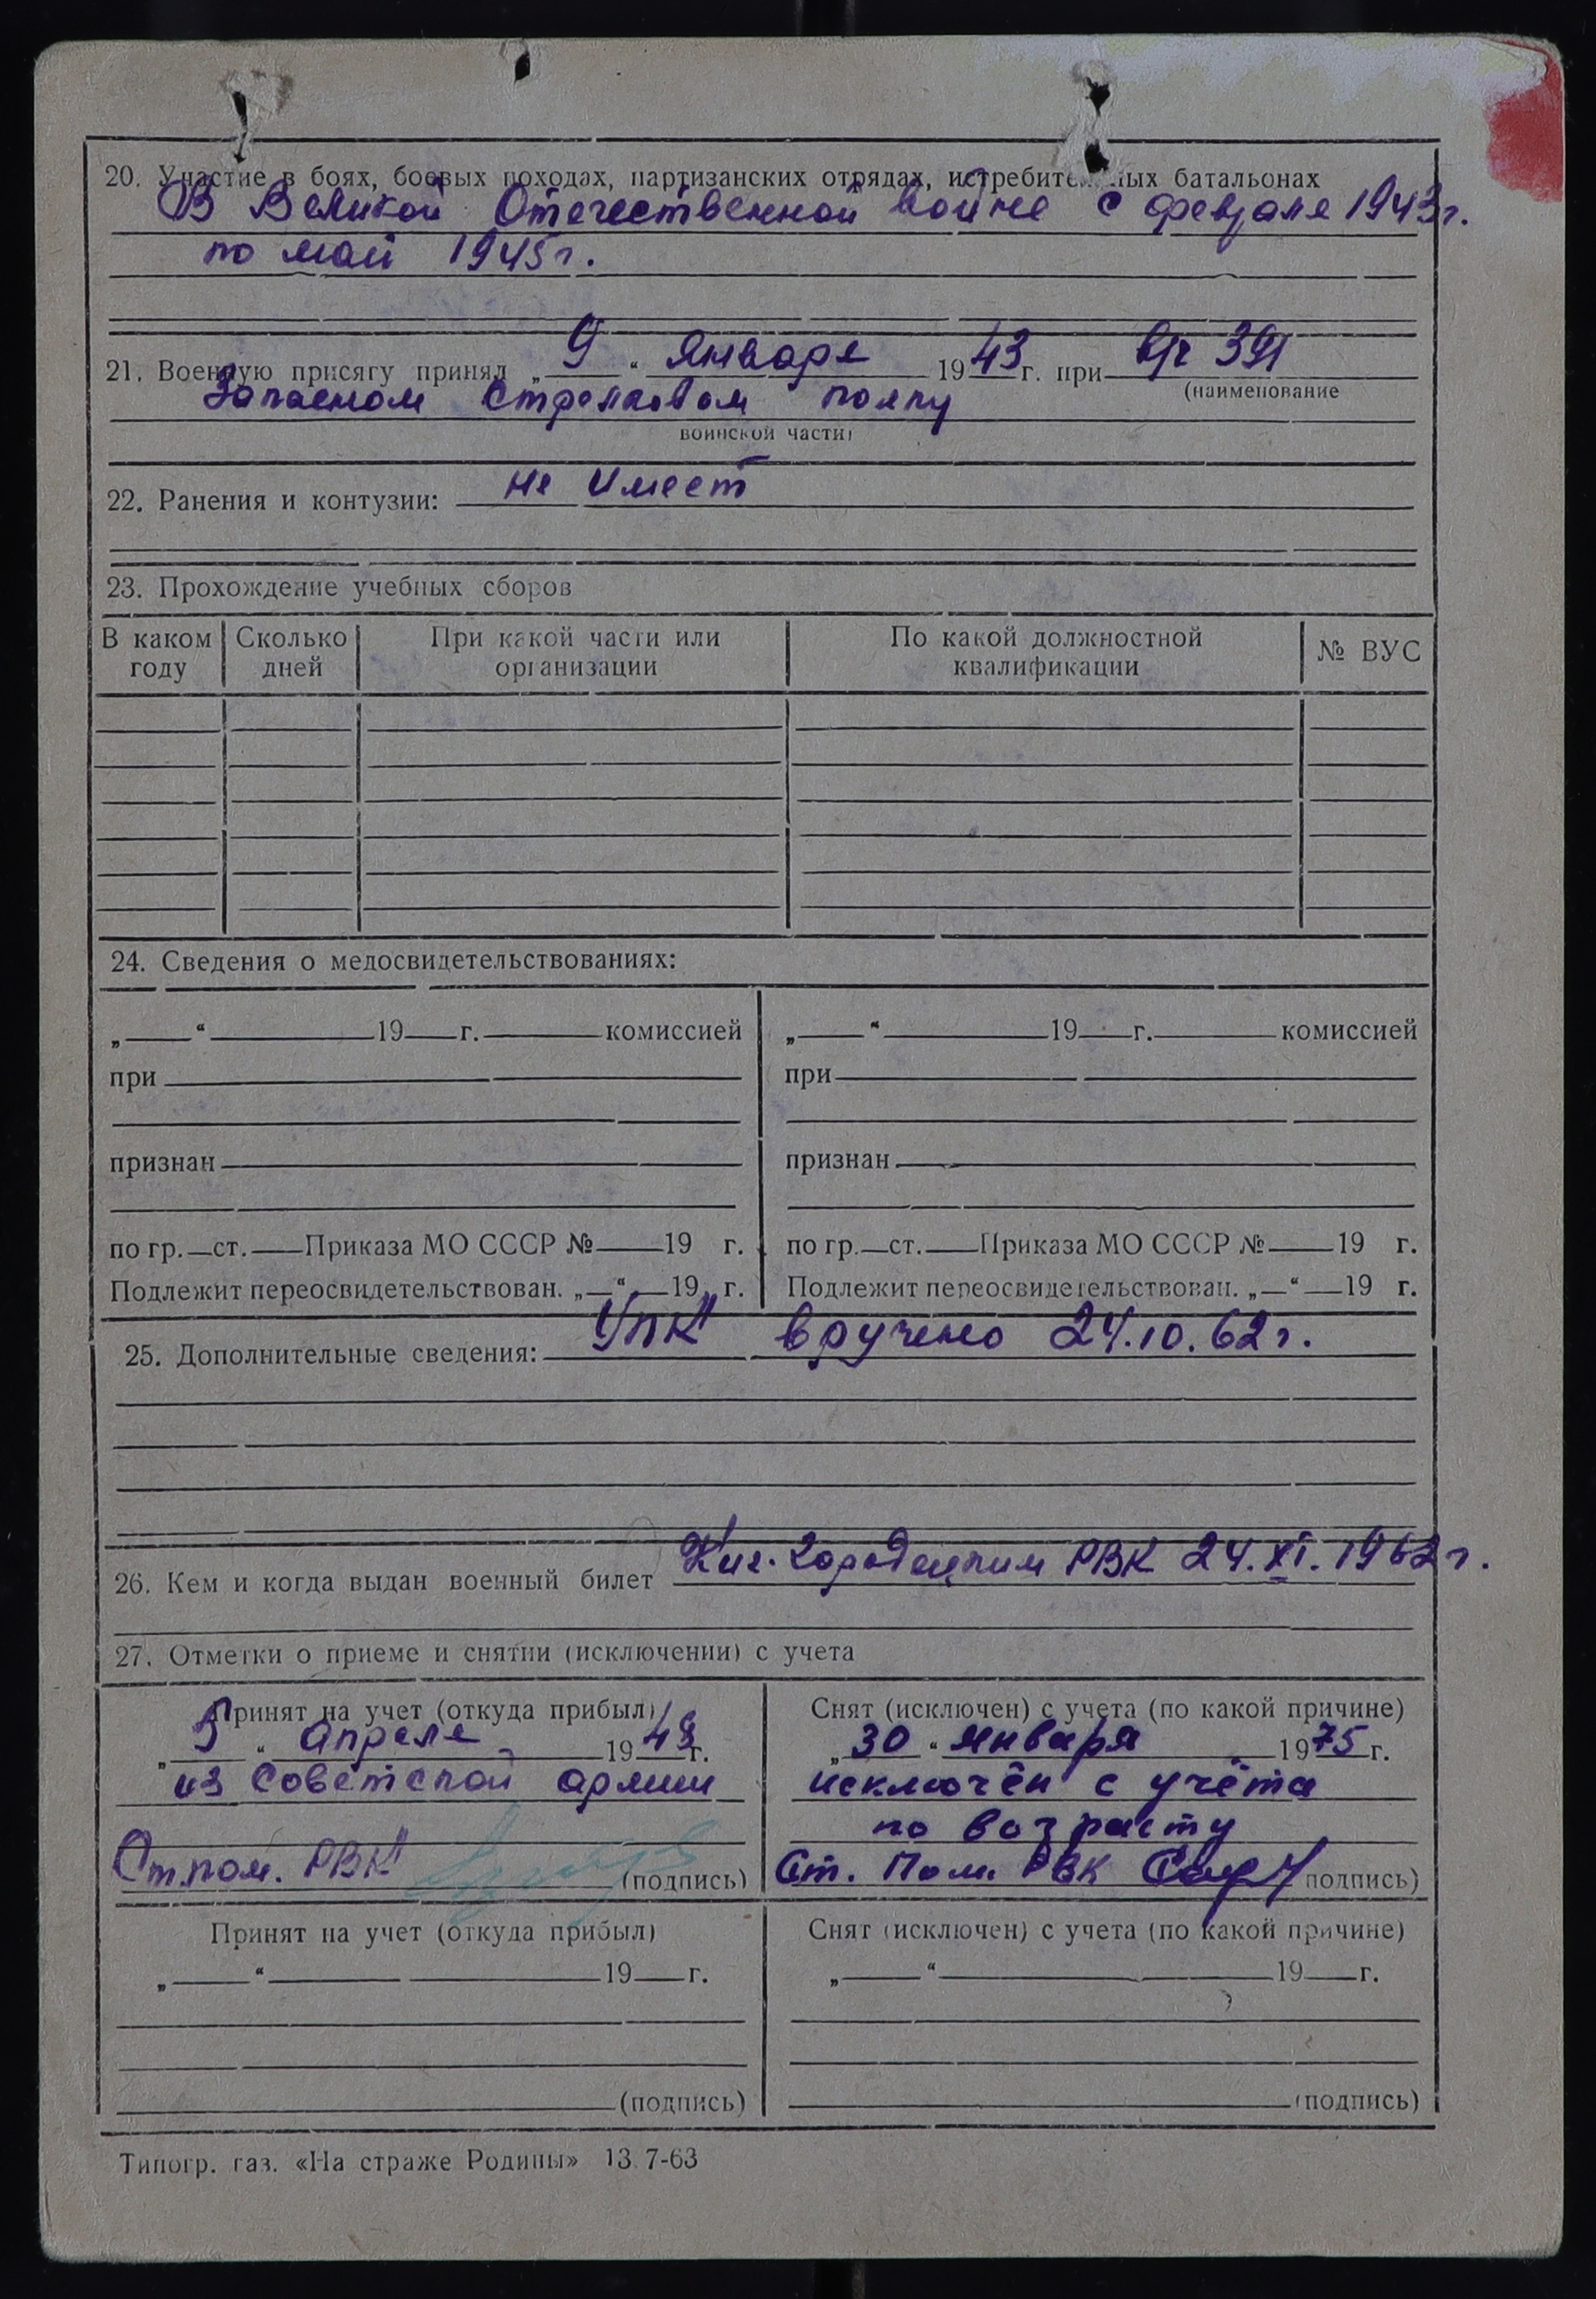 20. Участие в боях, боевых походах, партизанских отрядах, истребительных батальонах
В Великой Отечественной войне с февраля 1943 г.
по май 1945 г.
21. Военную присягу принял „ 9 “ января 1943 г. при в/ч 391
(наименование
Запасном стрелковом полку
воинской части)
22. Ранения и контузии: не имеет
23. Прохождение учебных сборов
В каком году | Сколько дней | При какой части или организации | По какой должностной квалификации | № ВУС
24. Сведения о медосвидетельствованиях:
„ “ 19 г. комиссией | „ “ 19 г. комиссией
при | при
признан | признан
по гр. ст. Приказа МО СССР № 19 г. | по гр. ст. Приказа МО СССР № 19 г.
Подлежит переосвидетельствован. „ “ 19 г. | Подлежит переосвидетельствован. „ “ 19 г.
25. Дополнительные сведения: УПК вручено 24.10.62 г.
26. Кем и когда выдан военный билет Киг. Городецким РВК 24.XI.1962 г.
27. Отметки о приеме и снятии (исключении) с учета
Принят на учет (откуда прибыл)
„ 5 “ апреля 1948 г.
из Советской армии
Ст. пом. РВК (подпись)
Снят (исключен) с учета (по какой причине)
„ 30 “ января 1975 г.
исключён с учёта
по возрасту
Ст. Пом. РВК (подпись)
Принят на учет (откуда прибыл)
„ “ 19 г.
(подпись)
Снят (исключен) с учета (по какой причине)
„ “ 19 г.
(подпись)
Типогр. газ. «На страже Родины» 13 7-63